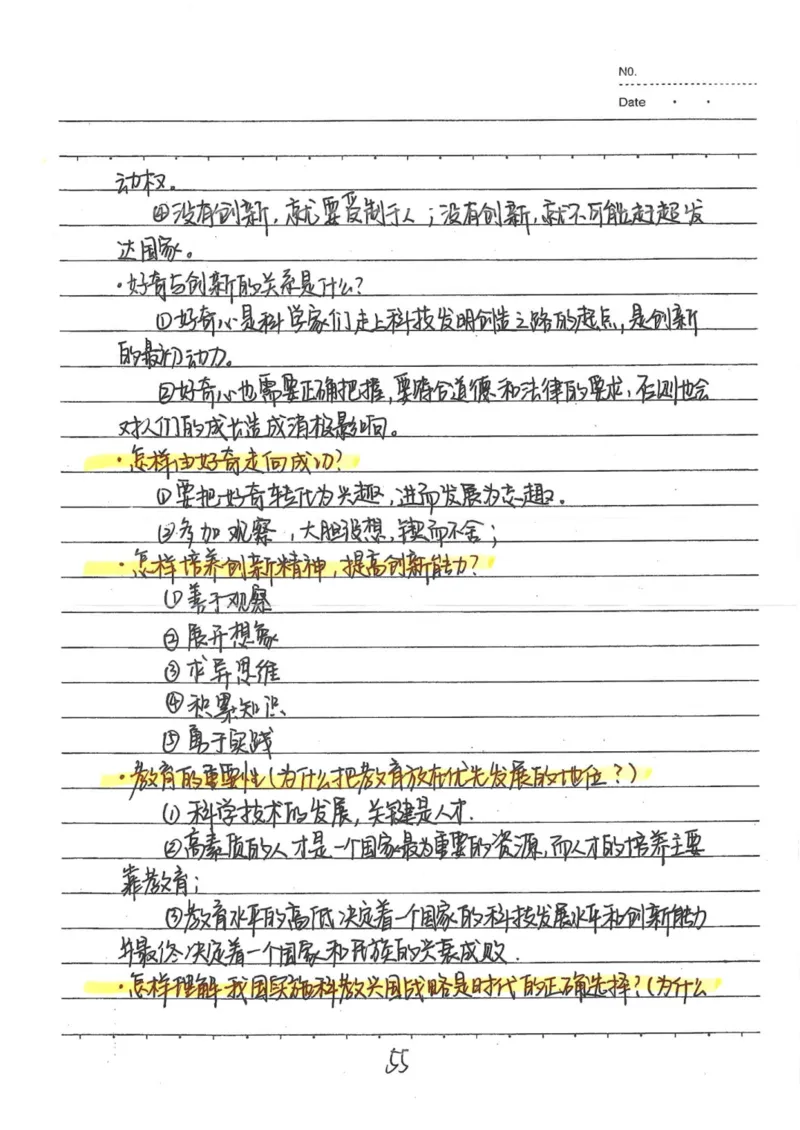 NO.
Date
动权。
④没有创新，就要受制于人；没有创新，就不可能赶超发
达国家。
·好奇与创新的关系是什么？
①好奇心是科学家们走上科技发明创造之路的起点，是创新
的最初动力。
②好奇心也需要正确把握，要符合道德和法律的要求，否则也会
对人们的成长造成消极影响。
·怎样由好奇走向成功？
①要把好奇转化为兴趣，进而发展为志趣。
②多加观察，大胆设想，锲而不舍；
·怎样培养创新精神，提高创新能力？
①善于观察
②展开想象
③求异思维
④积累知识
⑤勇于实践
·教育的重要性（为什么把教育放在优先发展的地位？）
①科学技术的发展，关键是人才.
②高素质的人才是一个国家最为重要的资源，而人才的培养主要
靠教育；
③教育水平的高低决定着一个国家的科技发展水平和创新能力
并最终决定着一个国家和民族的兴衰成败.
·怎样理解我国实施科教兴国战略是时代的正确选择？（为什么
55